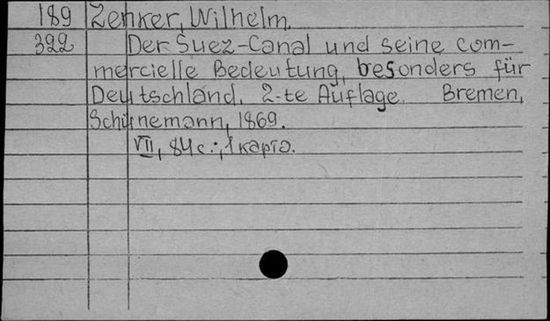 189 Zenker, Wilhelm.
322 Der Suez-Canal und seine com-
mercielle Bedeutung, besonders für
Deutschland. 2-te Auflage. Bremen,
Schünemann, 1869.
VII, 84 c.; 1 карта.